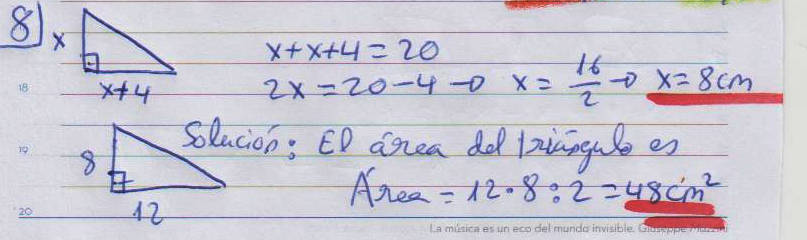 8) x
x+4
x+x+4=20
2x=20-4 → x=16/2 → x=8cm
18
19
8
12
Solución: El área del triángulo es
Área=12·8:2=48cm²
20
La música es un eco del mundo invisible. Giuseppe Mazzini